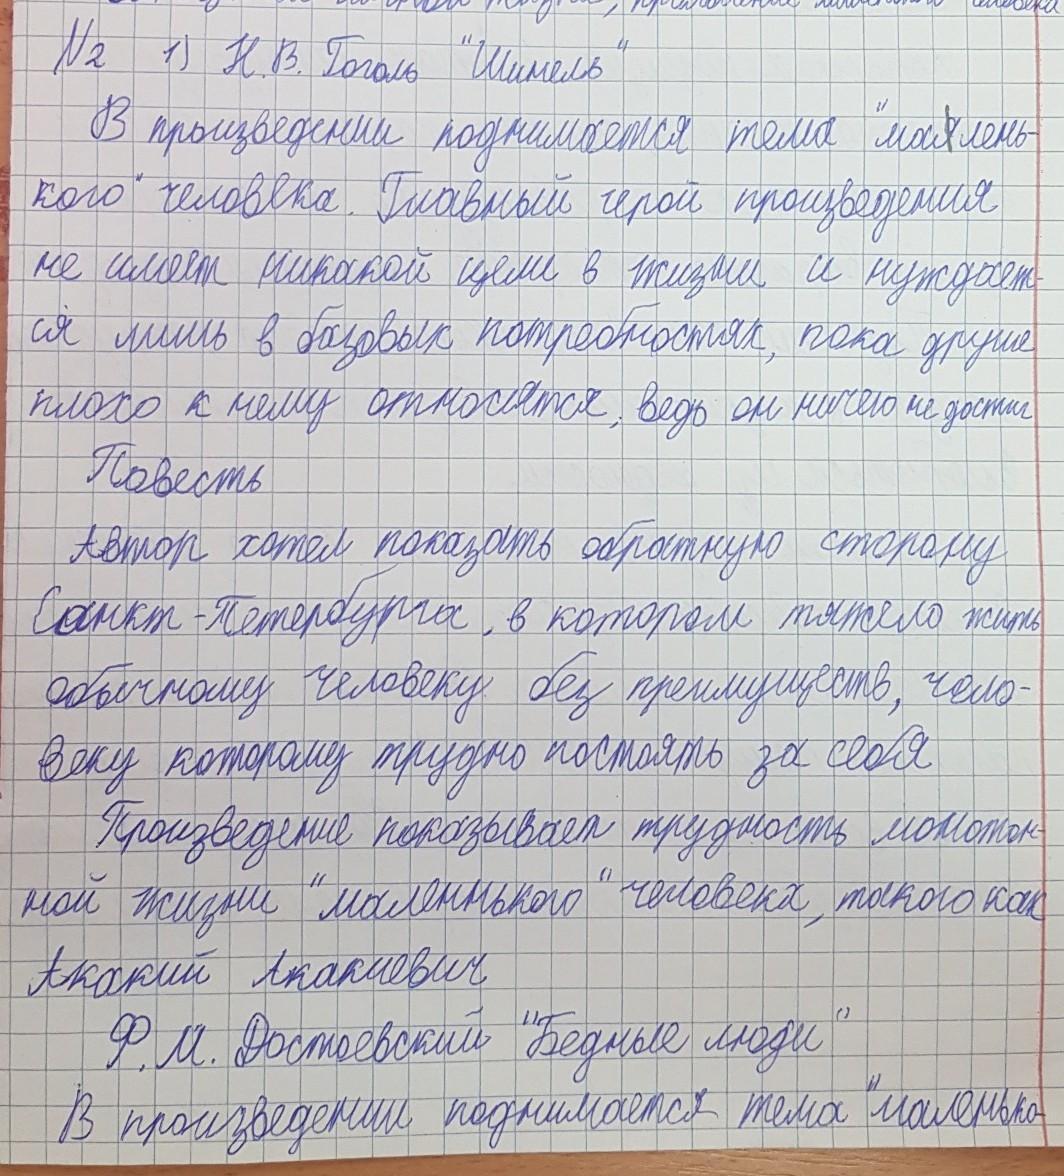 , преломление маленького человека
№2 1) Н.В. Гоголь "Шинель"
В произведении поднимается тема "малень-
кого" человека. Главный герой произведения
не имеет никакой цели в жизни и нуждает-
ся лишь в базовых потребностях, пока другие
плохо к нему относятся, ведь он ничего не достиг
Повесть
Автор хотел показать обратную сторону
Санкт-Петербурга, в котором тяжело жить
обычному человеку без преимуществ, чело-
веку которому трудно постоять за себя
Произведение показывает трудность монотон-
ной жизни "маленнького" человека, такого как
Акакий Акакиевич
Ф.М. Достоевский "Бедные люди"
В произведении поднимается тема "маленько-